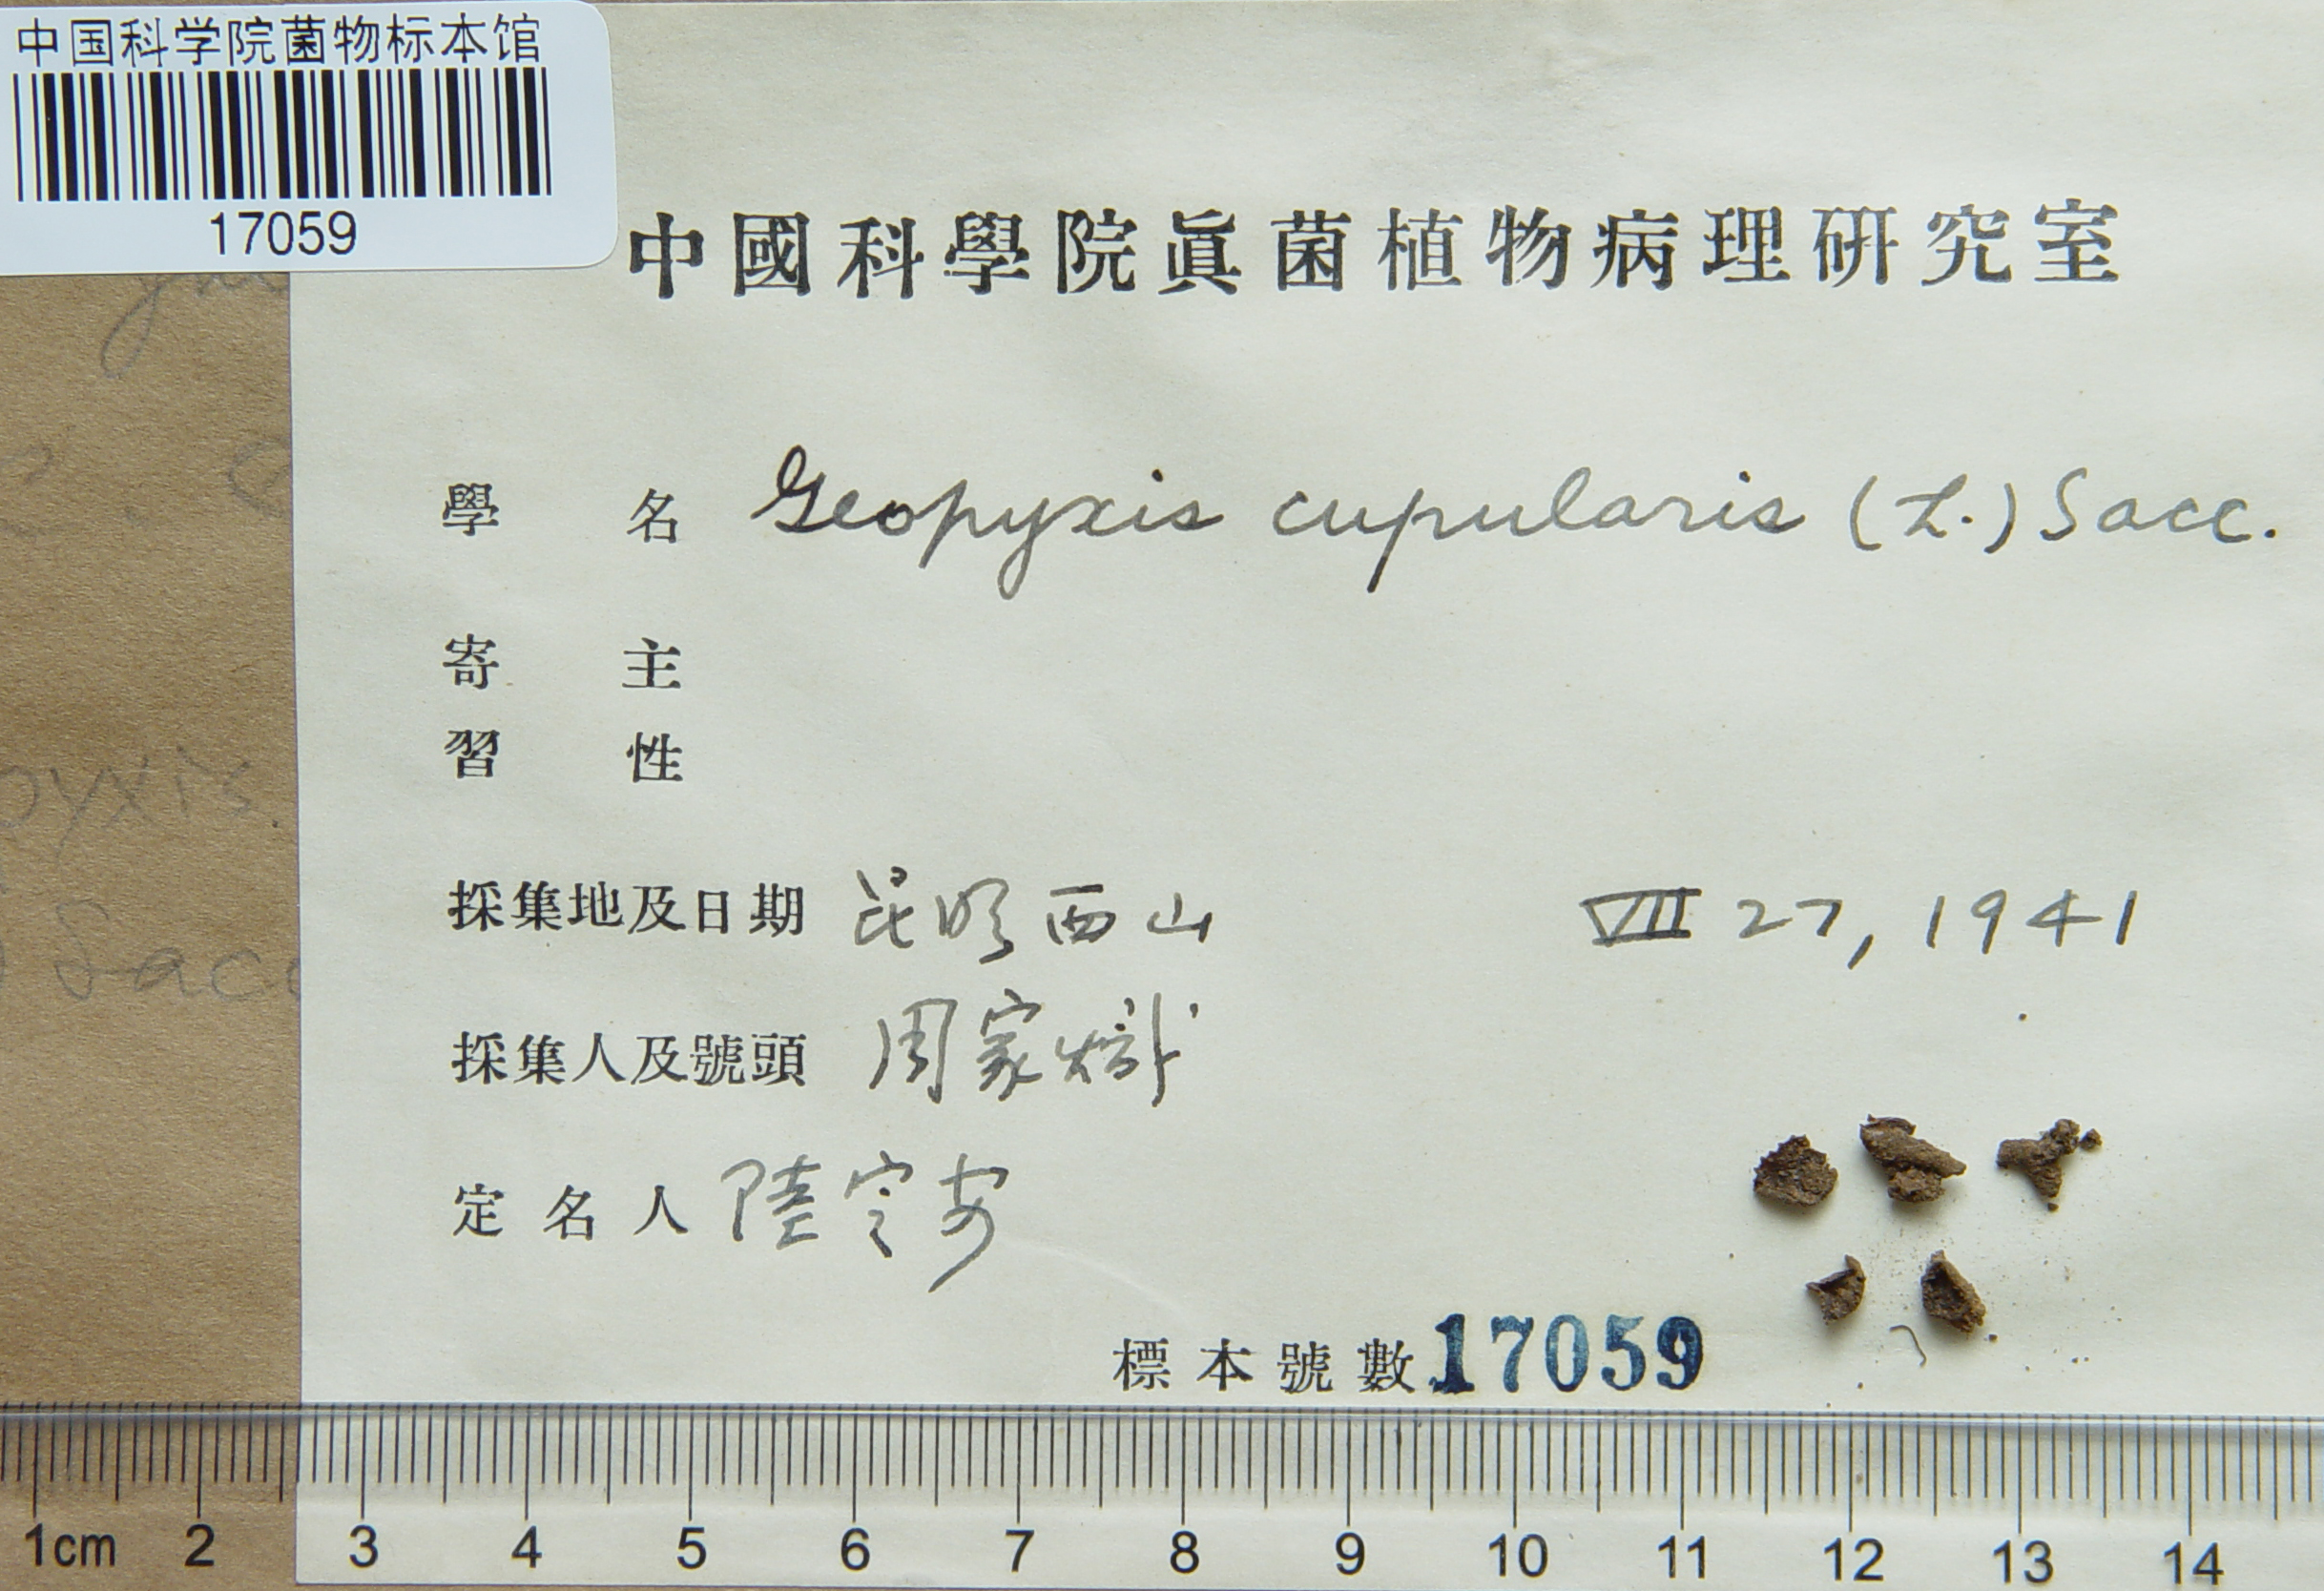 中国科学院菌物标本馆
17059
中國科學院眞菌植物病理研究室
學名 Geopyxis cupularis (L.) Sacc.
寄主
習性
採集地及日期 昆明西山 VII 27, 1941
採集人及號頭 周家熾
定名人 陸定安
標本號數 17059
pyxis
Sacc
1cm 2 3 4 5 6 7 8 9 10 11 12 13 14